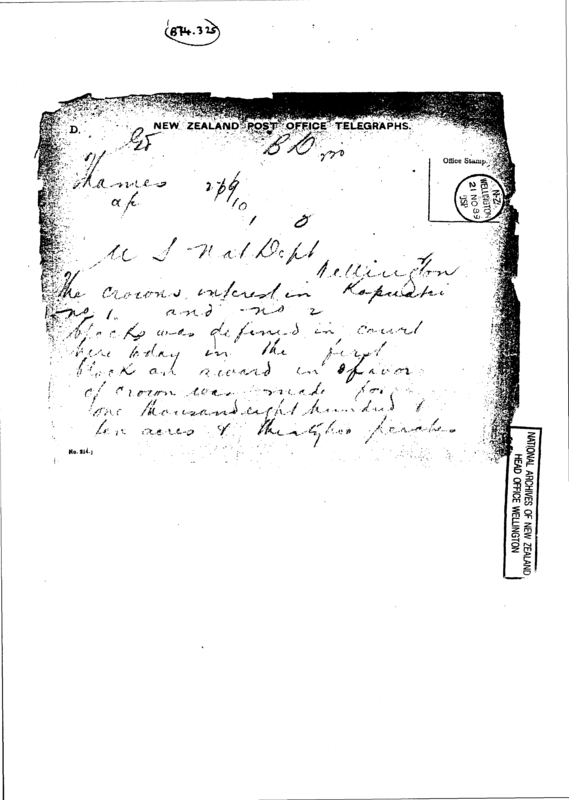 B74.325
D.
NEW ZEALAND POST OFFICE TELEGRAPHS.
Office Stamp.
N.Z.
WELLINGTON
21 NO 99
Thames
Nat Dept
Wellington
The crowns interest in
no 1. and no 2
blocks was defined in court
here today in the first
block an award in favor
of crown was made for
one thousand eight hundred &
ten acres & perches
No. 214.]
NATIONAL ARCHIVES OF NEW ZEALAND
HEAD OFFICE WELLINGTON